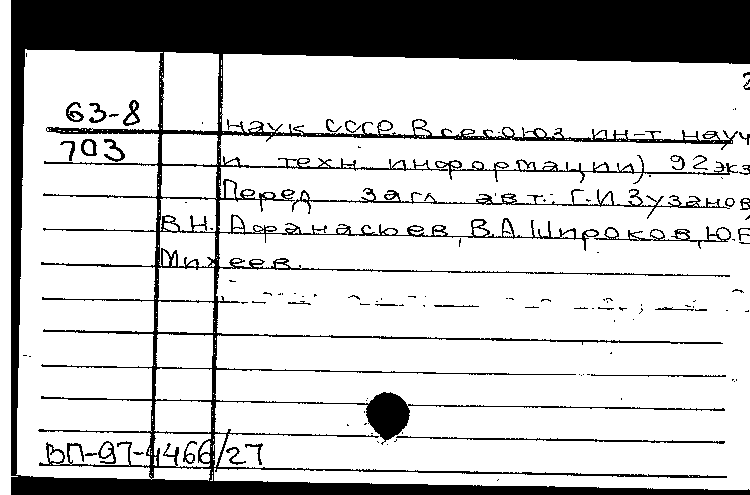 2
63-8
наук СССР. Всесоюз. ин-т науч
703
и техн. информации). 92 экз
Перед загл. авт.: Г.И. Зузанов
В.Н. Афанасьев, В.А. Широков, Ю.Е
Михеев.
ВП-97-4466/27